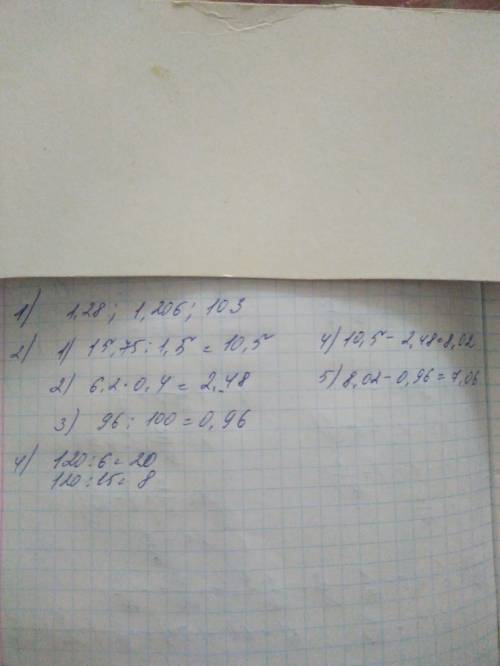 1) 1,28; 1,206; 103
2) 1) 15,75 : 1,5 = 10,5
2) 6,2 · 0,4 = 2,48
3) 96 : 100 = 0,96
4) 10,5 - 2,48 = 8,02
5) 8,02 - 0,96 = 7,06
4) 120 : 6 = 20
120 : 15 = 8